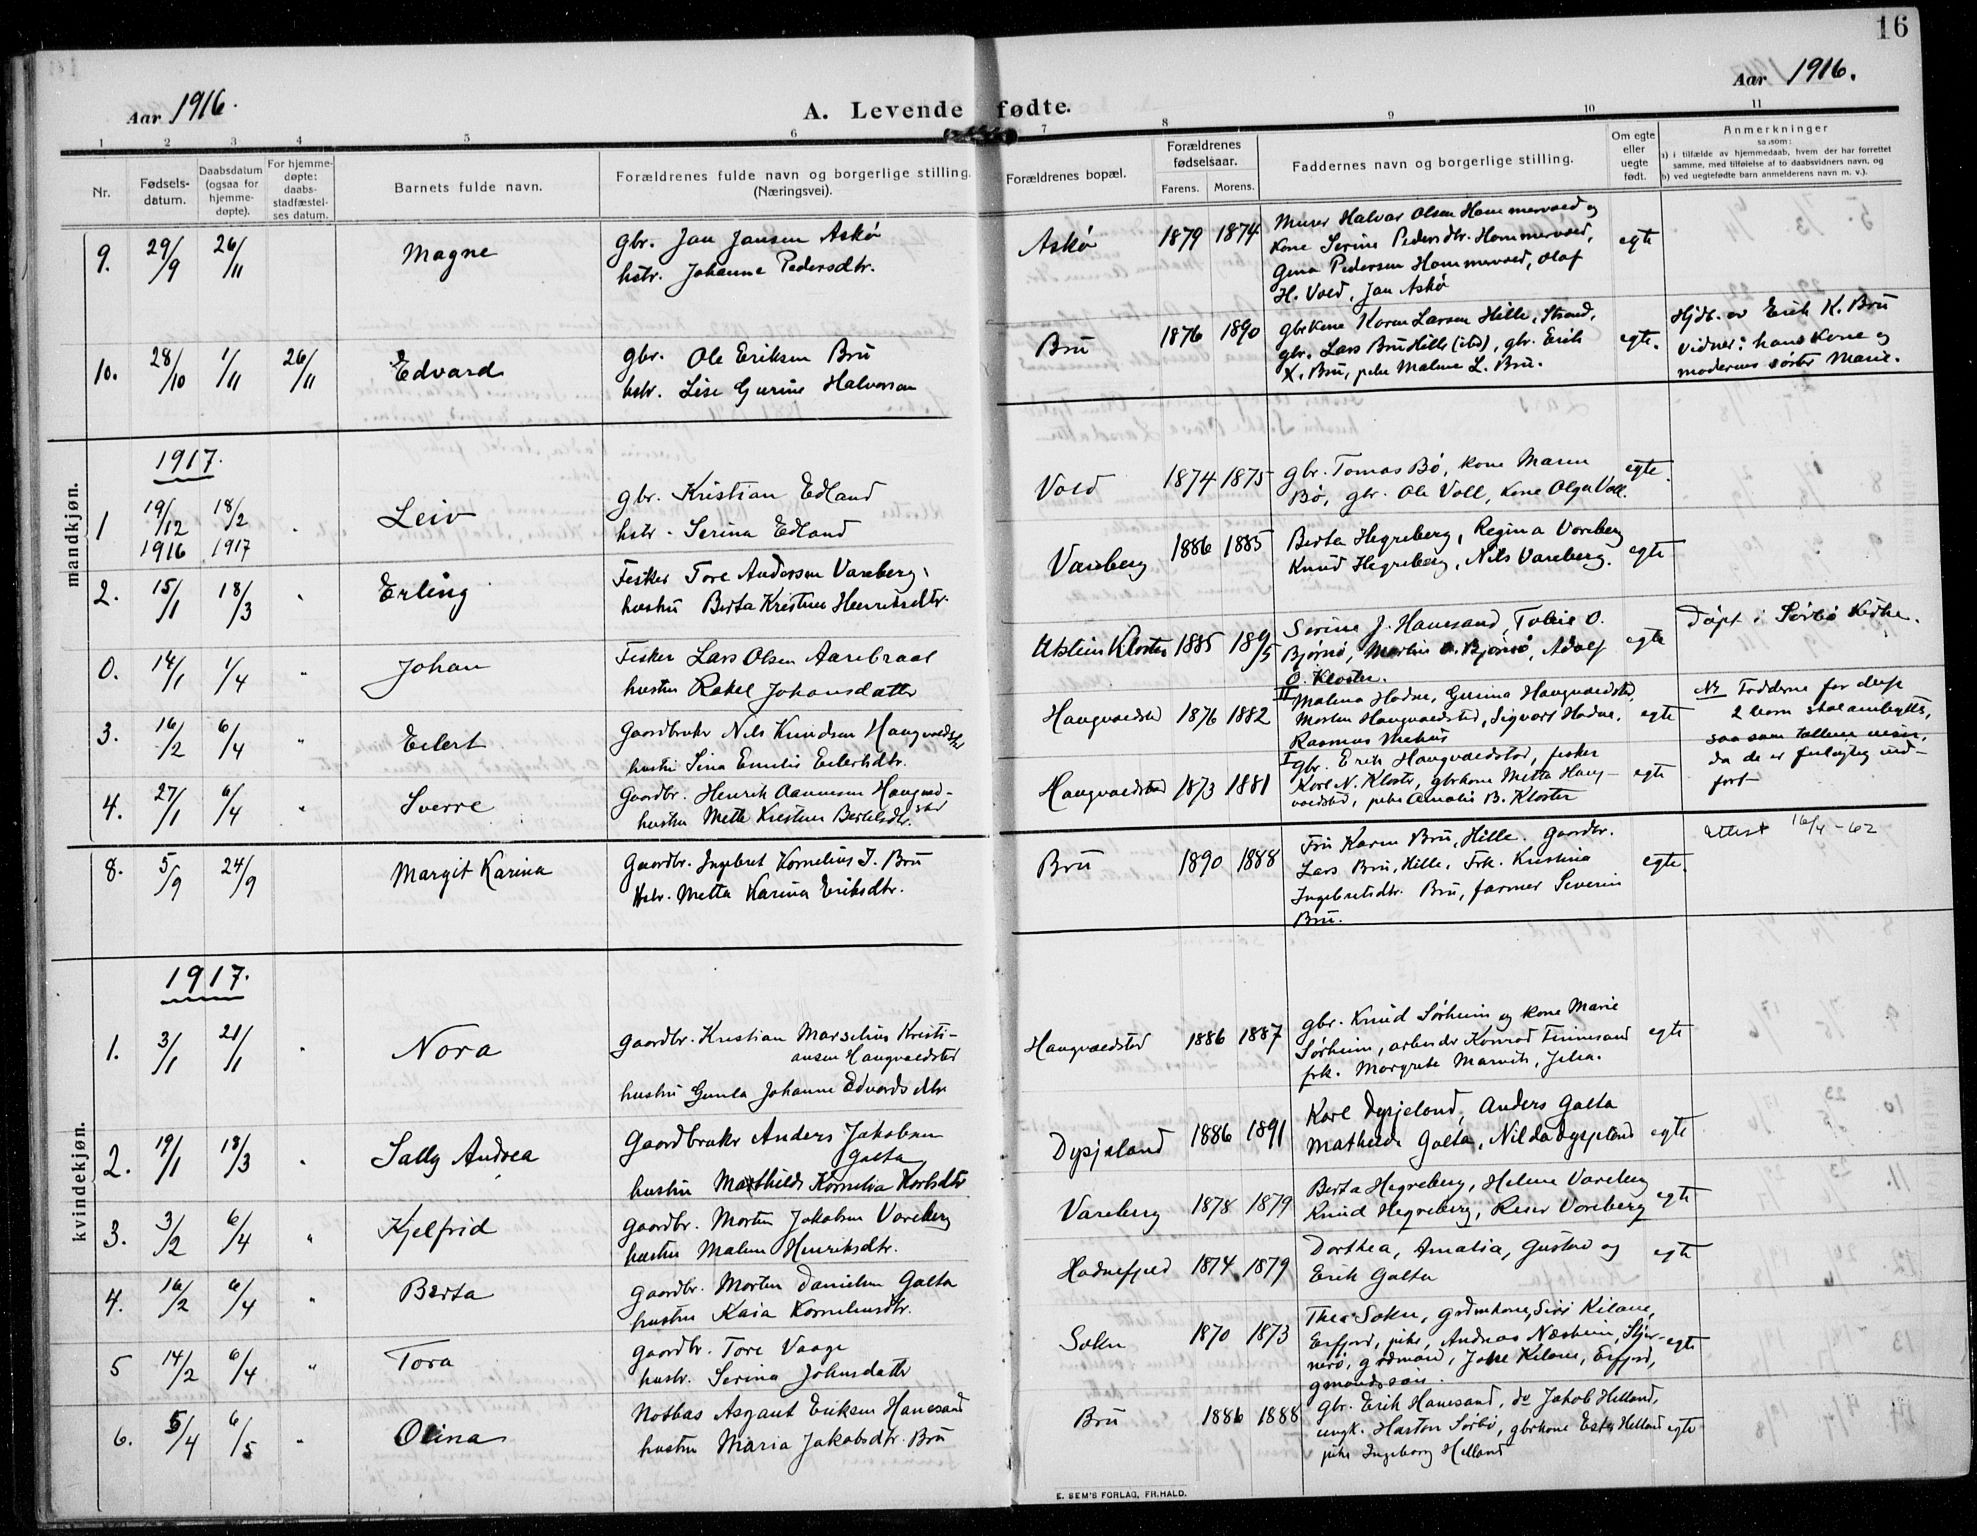 16
Aar 1916.
Aar 1916.
A. Levende fødte.
1 2 3 4 5 6 7 8 9 10 11
Nr.
Fødsels-
datum.
Daabsdatum
(ogsaa for
hjemme-
døpte).
For hjemme-
døpte:
daabs-
stadfæstel-
ses datum.
Barnets fulde navn.
Forældrenes fulde navn og borgerlige stilling.
(Næringsvei).
Forældrenes bopæl.
Forældrenes
fødselsaar.
Farens. Morens.
Faddernes navn og borgerlige stilling.
Om egte
eller
uegte
født.
Anmerkninger
saasom:
a) i tilfælde av hjemmedaab, hvem der har forrettet
samme, med tilføielse af to daabsvidners navn, og
b) ved uegtefødte barn anmelderens navn m. v.).
mandkjøn.
9. 29/9 26/11 Magne
gbr. Jan Jansen Askø
hstr. Johanne Pedersdtr.
Askø 1879 1874
Murer Halvar Olsen Hommervoed og
kone Serine Pedersdtr. Hommervoed,
Gina Pedersen Hommervoed, Olaf
H. Vold, Jan Askø
egte
10. 28/10 1/11 26/11 Edvard
gbr. Ole Eriksen Bru
hstr. Lise Gurine Halvorsen
Bru 1876 1890
gbrkone Karen Larsen Hille, Strand,
gbr. Lars Bru Hille (ibd), gbr. Erik
K. Bru, pike Malene L. Bru.
egte.
Hjdt. av Erik K. Bru
vidner: hans kone og
moderens søster Marie.
1917.
1 19/12 1916 18/2 1917 " Leiv
gbr. Kristian Edland
hstr. Serina Edland
Vold 1874 1875
gbr. Tomas Bø, kone Maren
Bø, gbr. Ole Voll, kone Olga Voll.
egte.
2. 15/1 18/3 " Erling
Fisker Tore Andersen Vareberg,
hustru Berta Kristine Henriksdtr.
Vareberg 1886 1885
Berta Hegreberg, Regina Vareberg
Knud Hegreberg, Nils Vareberg.
egte
0. 14/1 1/4 " Johan
Fisker Lars Olsen
hustru Rakel Johansdatter
Utstein Kloster 1885 1895
Serine J. Hanesand, Tobie O.
Bjørnø, Martin O. Bjørnø, Adolf
O. Kloster.
egte
Døpt i Sørbø Kirke.
3. 16/2 6/4 " Eilert
Gaardbruker Nils Knudsen Haugvaldstad
hustru Sina Emilie Eilertsdtr.
Haugvaldstad 1876 1882
II Malena Hodne, Gurina Haugvaldstad,
Morten Haugvaldstad, Sigvart Hodne,
Rasmus Mehus
egte
NB Fadderne for disse
2 barn skal ombyttes,
saa som tallene viser,
da de er feilagtig ind-
ført
4. 27/1 6/4 " Sverre
Gaardbr. Henrik Aanensen Haugvald-
stad
hustru Mette Kristine Bertelsdtr.
Haugvaldstad 1873 1881
I gbr. Erik Haugvaldstad, fisker
Karl N. Kloster, gbrkone Metta Haug-
valdstad, pike Amalie B. Kloster
egte
kvindekjøn.
8. 5/9 24/9 Margit Karina
Gaardbr. Ingebret Kornelius I. Bru
Hstr. Metta Karina Eriksdtr.
Bru 1890 1888
Fru Karen Bru, Hille. Gaardbr.
Lars Bru, Hille, Frk. Kristina
Ingebretsdtr. Bru, farmer Severin
Bru.
egte.
Attest 16/4-62
1917.
1. 3/1 21/1 " Nora
Gaardbr. Kristian Marselius Kristi-
ansen Haugvaldstad
hustru Gunla Johanne Edvardsdtr
Haugvaldstad 1886 1887
gbr. Knud Sørheim og kone Marie
Sørheim, arbeider Konrad Finnesand
frk. Margrete Marvik, Jelsa.
egte
2. 19/1 18/3 " Sally Andrea
Gaardbruker Anders Jakobsen
Galta
hustru Mathilde Kornelia Karlsdtr
Dysjeland 1886 1891
Karl Dysjeland, Anders Galta
Mathilde Galta, Nilda Dysjeland
egte
3. 3/2 6/4 " Kjelfrid
Gaardbr. Morten Jakobsen Vareberg
hustru Malene Henriksdtr.
Vareberg 1878 1879
Berta Hegreberg, Helene Vareberg
Knud Hegreberg, Reier Vareberg
egte
4. 16/2 6/4 " Berta
Gaardbr. Morten Danielsen Galta
hustru Kaia Korneliusdtr.
Hodnefjeld 1874 1879
Dorthea, Amalia, Gustav og
Erik Galta
egte
5 14/2 6/4 " Tora
Gaardbr. Tore Vaage
hustr. Serina Johnsdatter
Sokn 1870 1873
Thea Sokn, grdmkone, Siri Kilane,
Erfjord, pike, Andreas Næsheim, Stjer-
nerø, grdmand, Jone Kilane, Erfjord,
gmandssøn.
egte
6. 5/4 6/5 " Olina
Notbas Asgaut Eriksen Hanesand
hustru Maria Jakobsdtr. Bru
Bru 1886 1888
gbr. Erik Hanesand, do Jakob Helland,
ungk. Harton Sørbø, gbrkone Ester Helland
pike Ingeborg Helland
egte
E. SEM'S FORLAG, FR.HALD.